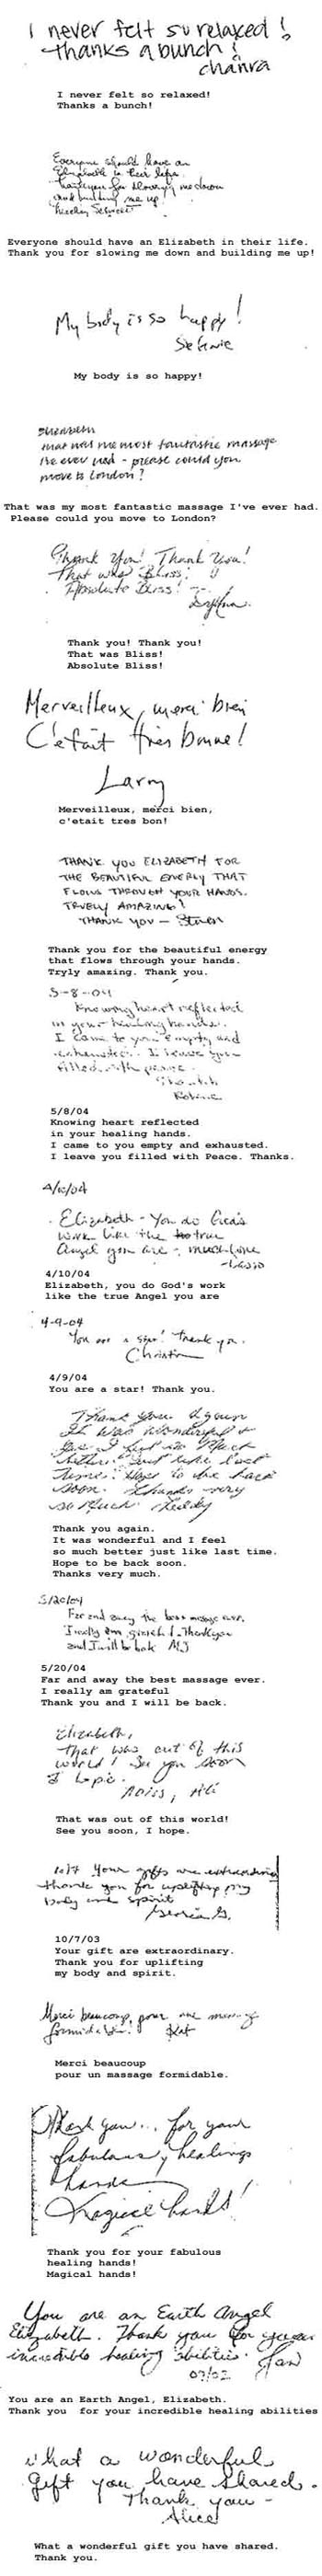 I never felt so relaxed!
thanks a bunch!
chanra
I never felt so relaxed!
Thanks a bunch!
Everyone should have an
Elizabeth in their life.
Thank you for slowing me down
and building me up!
Everyone should have an Elizabeth in their life.
Thank you for slowing me down and building me up!
My body is so happy!
Stefanie
My body is so happy!
Elizabeth
that was the most fantastic massage
I've ever had - please could you
move to London?
That was my most fantastic massage I've ever had.
Please could you move to London?
Thank You! Thank You!
That was Bliss!
Absolute Bliss!
Thank you! Thank you!
That was Bliss!
Absolute Bliss!
Merveilleux, merci bien
C'etait tres bonne!
Larry
Merveilleux, merci bien,
c'etait tres bon!
THANK YOU ELIZABETH FOR
THE BEAUTIFUL ENERGY THAT
FLOWS THROUGH YOUR HANDS.
TRUELY AMAZING!
THANK YOU - Steven
Thank you for the beautiful energy
that flows through your hands.
Tryly amazing. Thank you.
5-8-04
Knowing heart reflected
in your healing hands.
I came to you empty and
exhausted. I leave you
filled with peace.
5/8/04
Knowing heart reflected
in your healing hands.
I came to you empty and exhausted.
I leave you filled with Peace. Thanks.
4/10/04
Elizabeth - You do God's
work like the true
Angel you are - much love
4/10/04
Elizabeth, you do God's work
like the true Angel you are
4-9-04
You are a star! Thank you.
Christin
4/9/04
You are a star! Thank you.
Thank you again
It was wonderful &
I feel so much
better just like last
time. Hope to be back
soon. Thanks very
so much. Teddy
Thank you again.
It was wonderful and I feel
so much better just like last time.
Hope to be back soon.
Thanks very much.
5/20/04
Far and away the best massage ever.
I really am grateful. Thank you
and I will be back
5/20/04
Far and away the best massage ever.
I really am grateful
Thank you and I will be back.
Elizabeth,
That was out of this
world! See you soon
I hope.
That was out of this world!
See you soon, I hope.
10/7 Your gifts are extraordinary
thank you for uplifting my
body and spirit
Georgia G.
10/7/03
Your gift are extraordinary.
Thank you for uplifting
my body and spirit.
Merci beaucoup, pour une massage
formidable! Kat
Merci beaucoup
pour un massage formidable.
Thank you... for your
fabulous, healings
hands
Magical hands!
Thank you for your fabulous
healing hands!
Magical hands!
You are an Earth Angel
Elizabeth. Thank you for your
incredible healing abilities. Jan
07/02
You are an Earth Angel, Elizabeth.
Thank you for your incredible healing abilities
What a wonderful
gift you have shared.
Thank you -
Alice
What a wonderful gift you have shared.
Thank you.